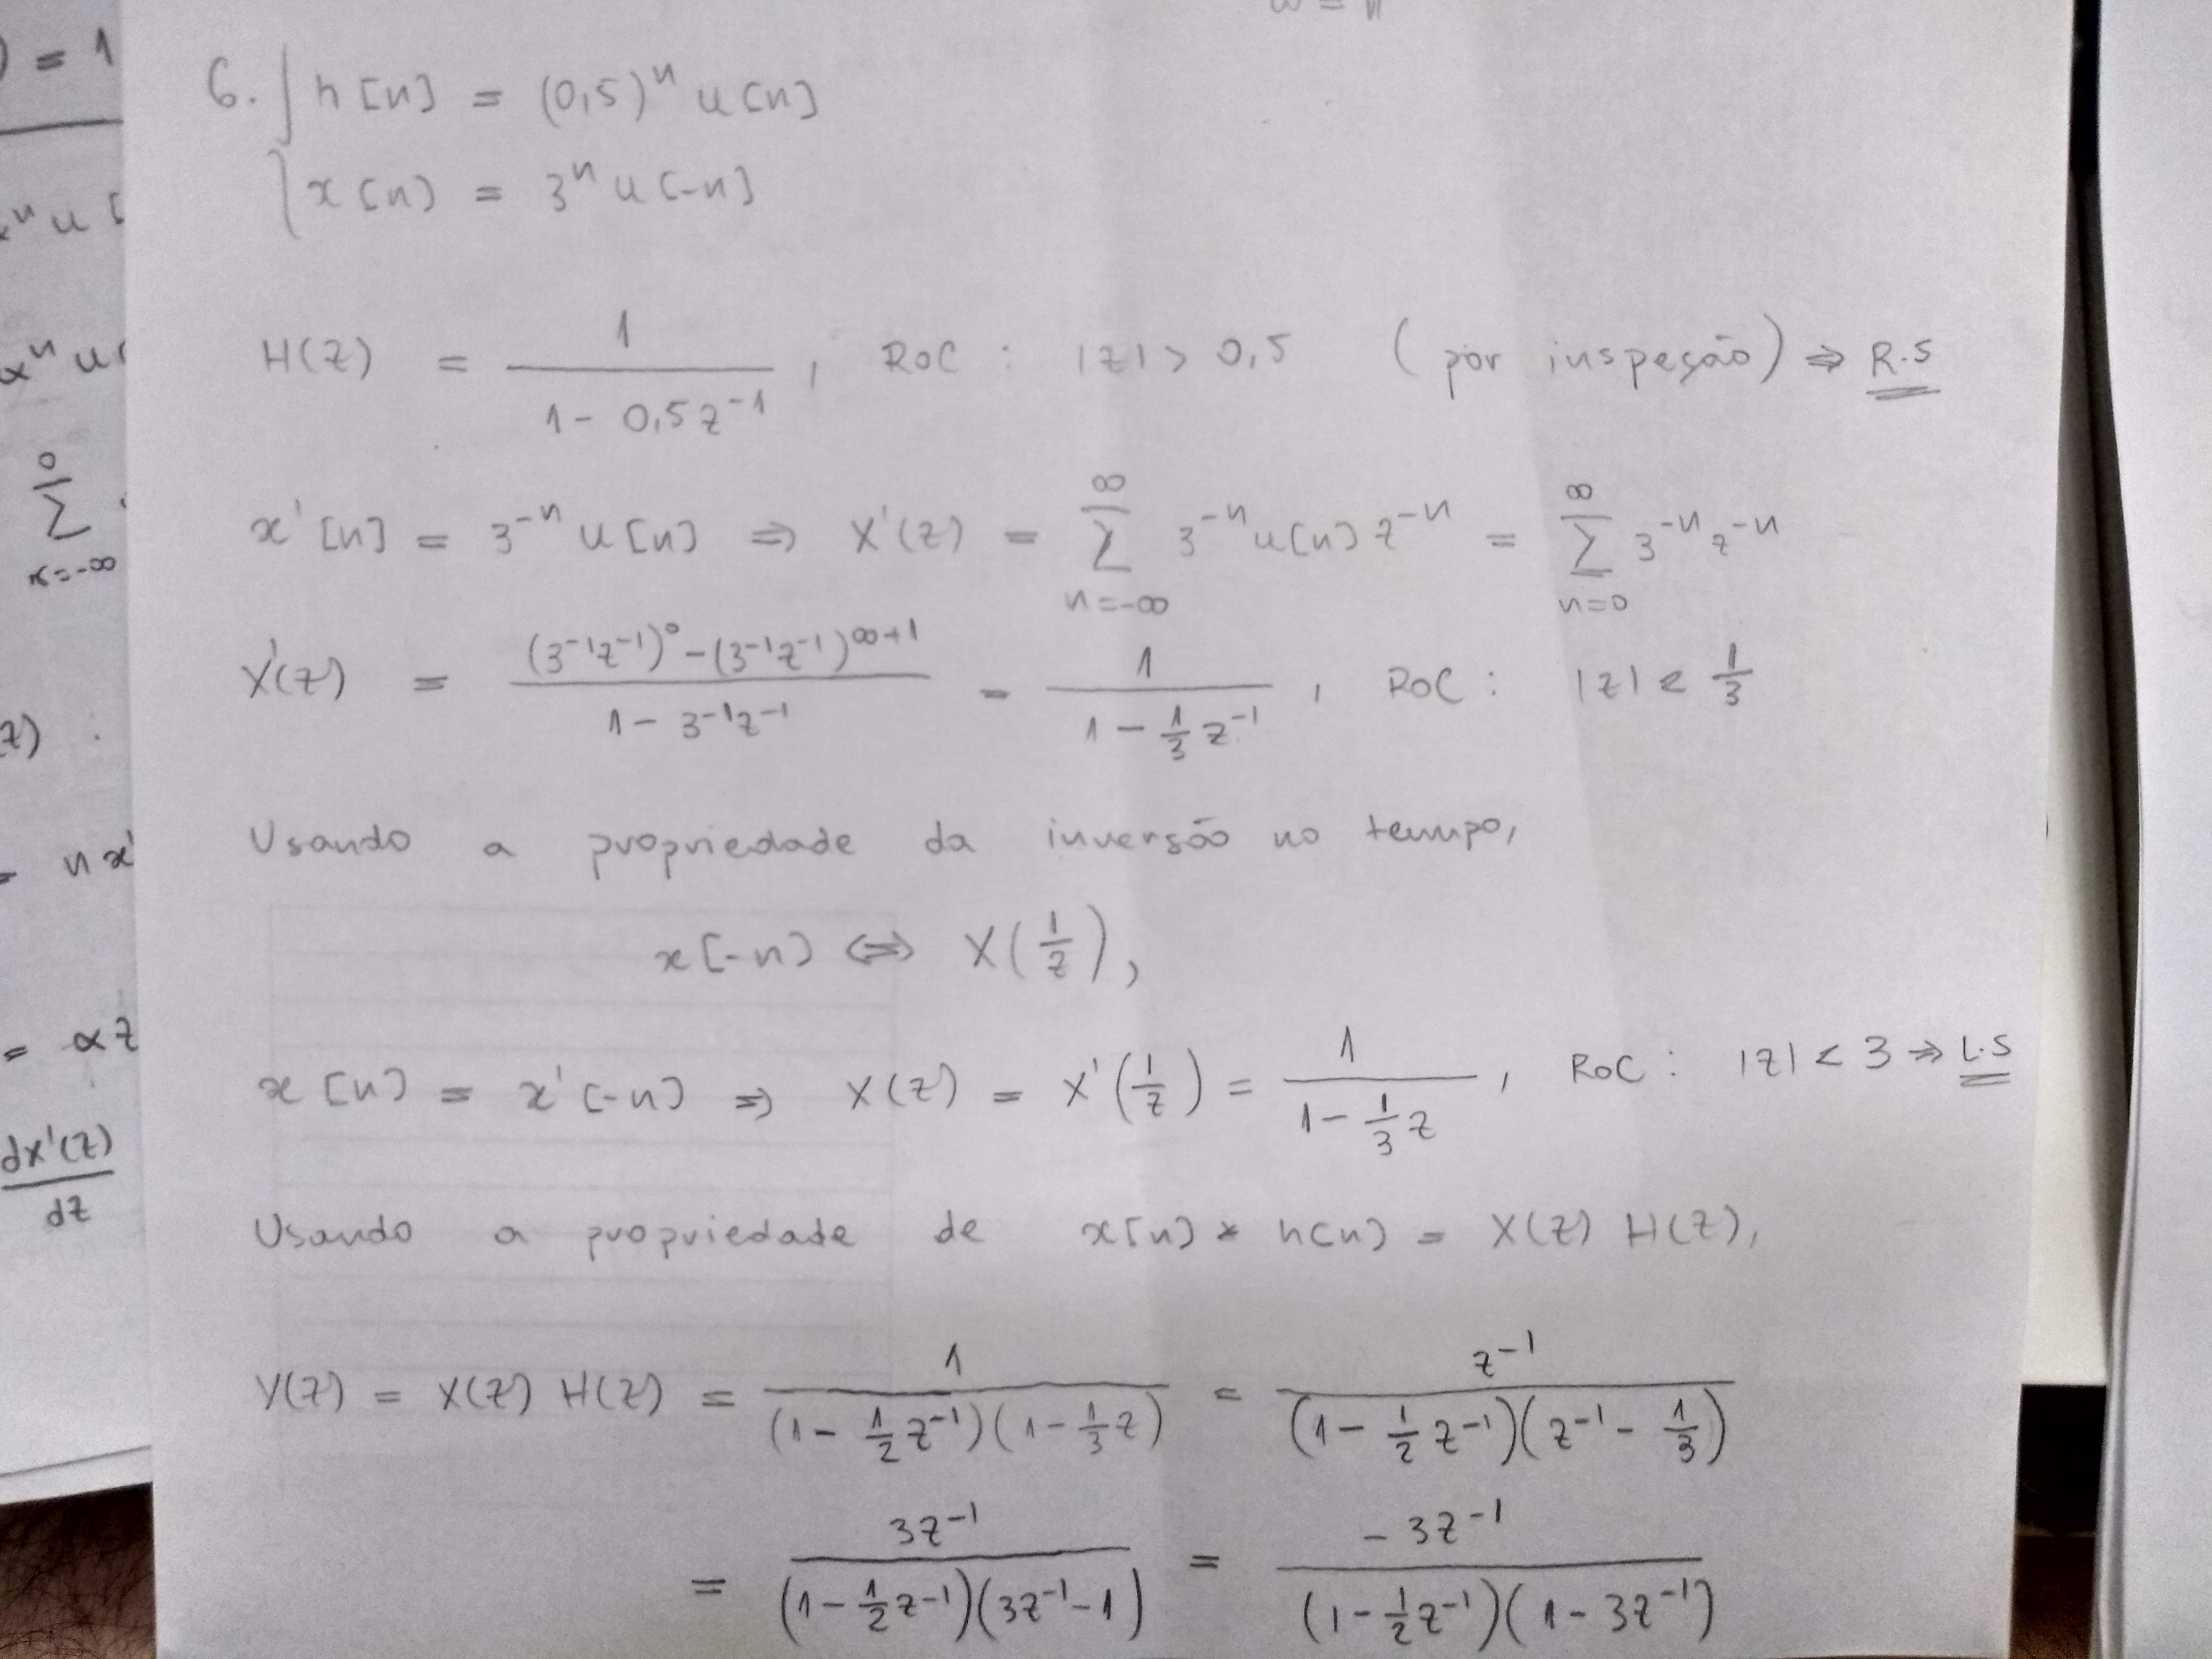 ω = π
6. { h[n] = (0,5)ⁿ u[n]
x[n] = 3ⁿ u[-n]
H(z) = 1 / (1 - 0,5z⁻¹) , ROC : |z| > 0,5 (por inspeção) ⇒ R.S
x'[n] = 3⁻ⁿ u[n] ⇒ X'(z) = ∑_{n=-∞}^{∞} 3⁻ⁿ u[n] z⁻ⁿ = ∑_{n=0}^{∞} 3⁻ⁿ z⁻ⁿ
X'(z) = ((3⁻¹z⁻¹)⁰ - (3⁻¹z⁻¹)^{∞+1}) / (1 - 3⁻¹z⁻¹) = 1 / (1 - 1/3 z⁻¹) , ROC : |z| < 1/3
Usando a propriedade da inversão no tempo,
x[-n] ⇔ X(1/z),
x[n] = x'[-n] ⇒ X(z) = X'(1/z) = 1 / (1 - 1/3 z) , ROC : |z| < 3 ⇒ L.S
Usando a propriedade de x[n] * h[n] = X(z) H(z),
Y(z) = X(z) H(z) = 1 / ((1 - 1/2 z⁻¹)(1 - 1/3 z)) = z⁻¹ / ((1 - 1/2 z⁻¹)(z⁻¹ - 1/3))
= 3z⁻¹ / ((1 - 1/2 z⁻¹)(3z⁻¹ - 1)) = -3z⁻¹ / ((1 - 1/2 z⁻¹)(1 - 3z⁻¹))
) = 1
αⁿ u[
αⁿ u[
∑_{k=-∞}^{0}
z) :
= n x'
= αz
dX'(z) / dz